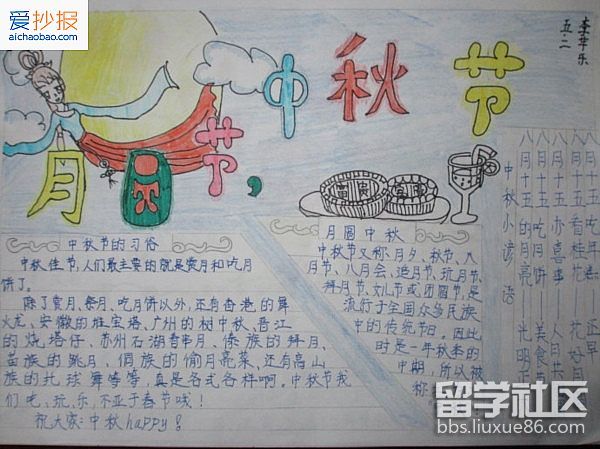 爱抄报
aichaobao.com
李苹乐
五.二
中秋节
月是节,
中秋节的习俗
中秋佳节,人们最主要的就是赏月和吃月
饼了。
除了赏月、祭月、吃月饼以外,还有香港的舞
火龙、安徽的堆宝塔、广州的树中秋、晋江
的烧塔仔、苏州石湖看串月、傣族的拜月、
苗族的跳月、侗族的偷月亮菜、还有高山
族的托球舞等等,真是各式各样啊。中秋节我
们吃、玩、乐,不亚于春节哦!
祝大家:中秋happy!
月圆中秋
中秋节又称:月夕、秋节、八
月节、八月会、追月节、玩月节、
拜月节、女儿节或团圆节,是
流行于全国众多民族
中的传统节日。因此
时是一年秋季的
中期,所以被
称
中秋小谚语
八月十五
八月十五的月亮
八月十五
八月十五
八月十五
留学社区
bbs.liuxue86.com